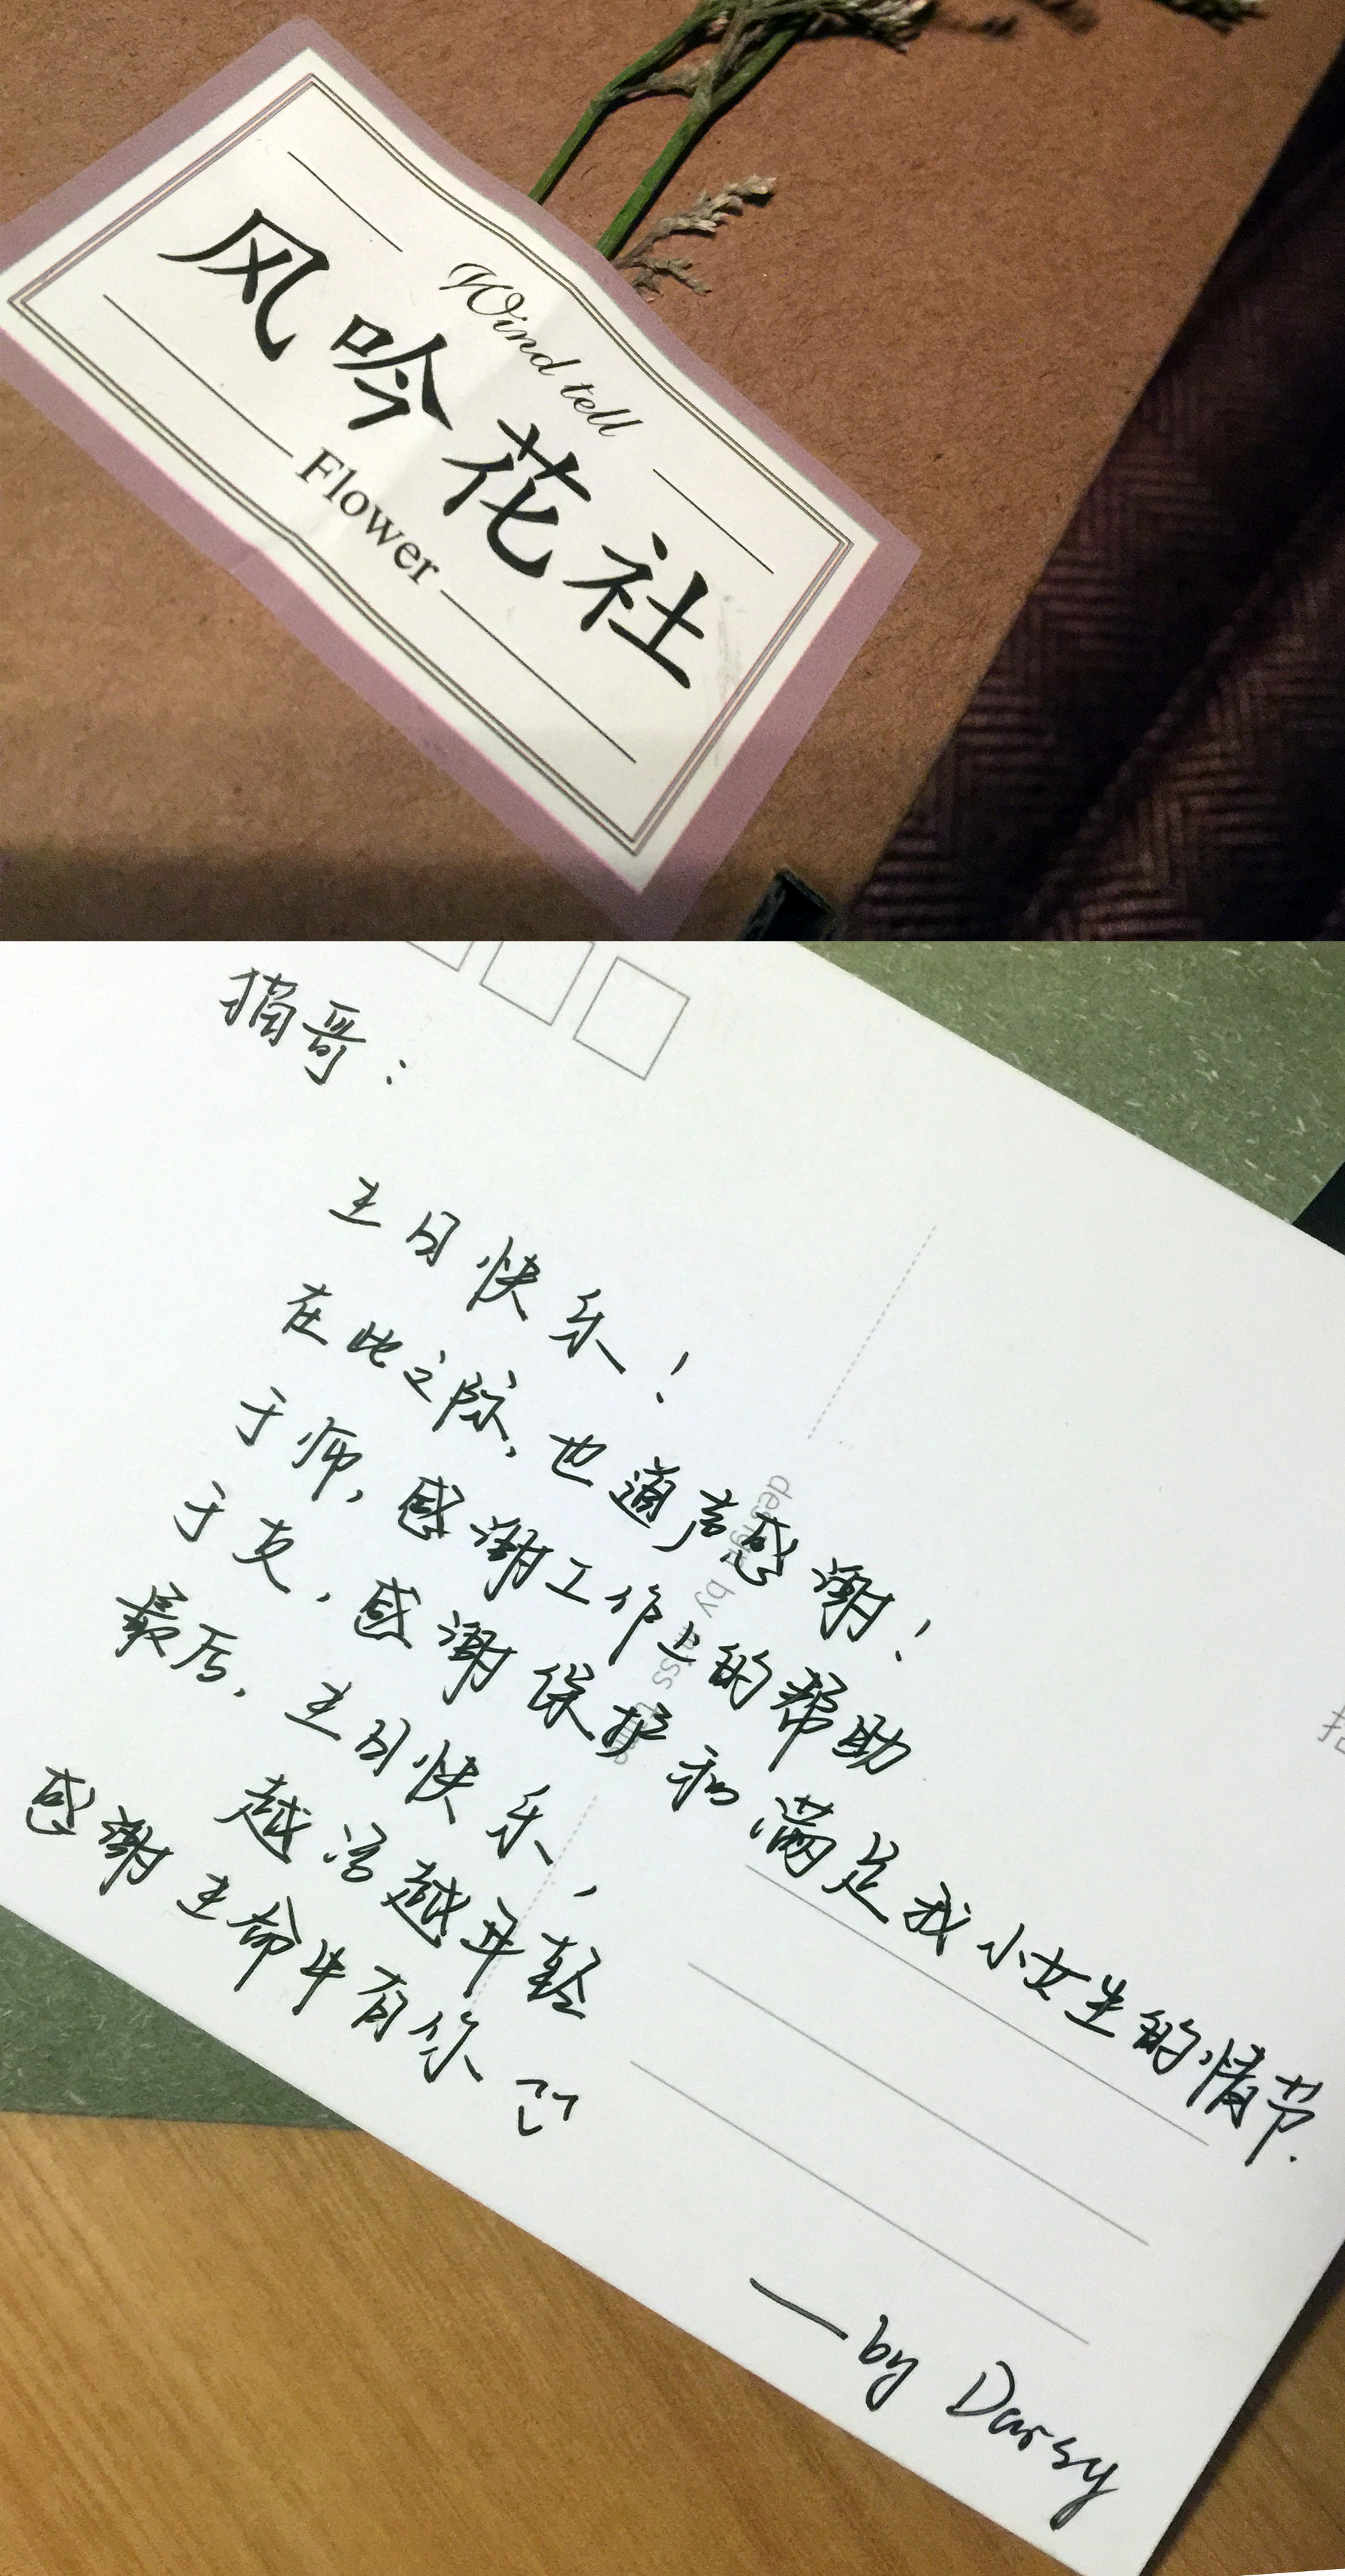 Wind tell
风吟花社
Flower
哥：
生日快乐！
在此之际，也道声感谢！
于师，感谢工作上的帮助
于友，感谢保护和满足我小女生的情节.
最后，生日快乐，
越活越年轻
感谢生命中有你
design by miss time
——by Darsy